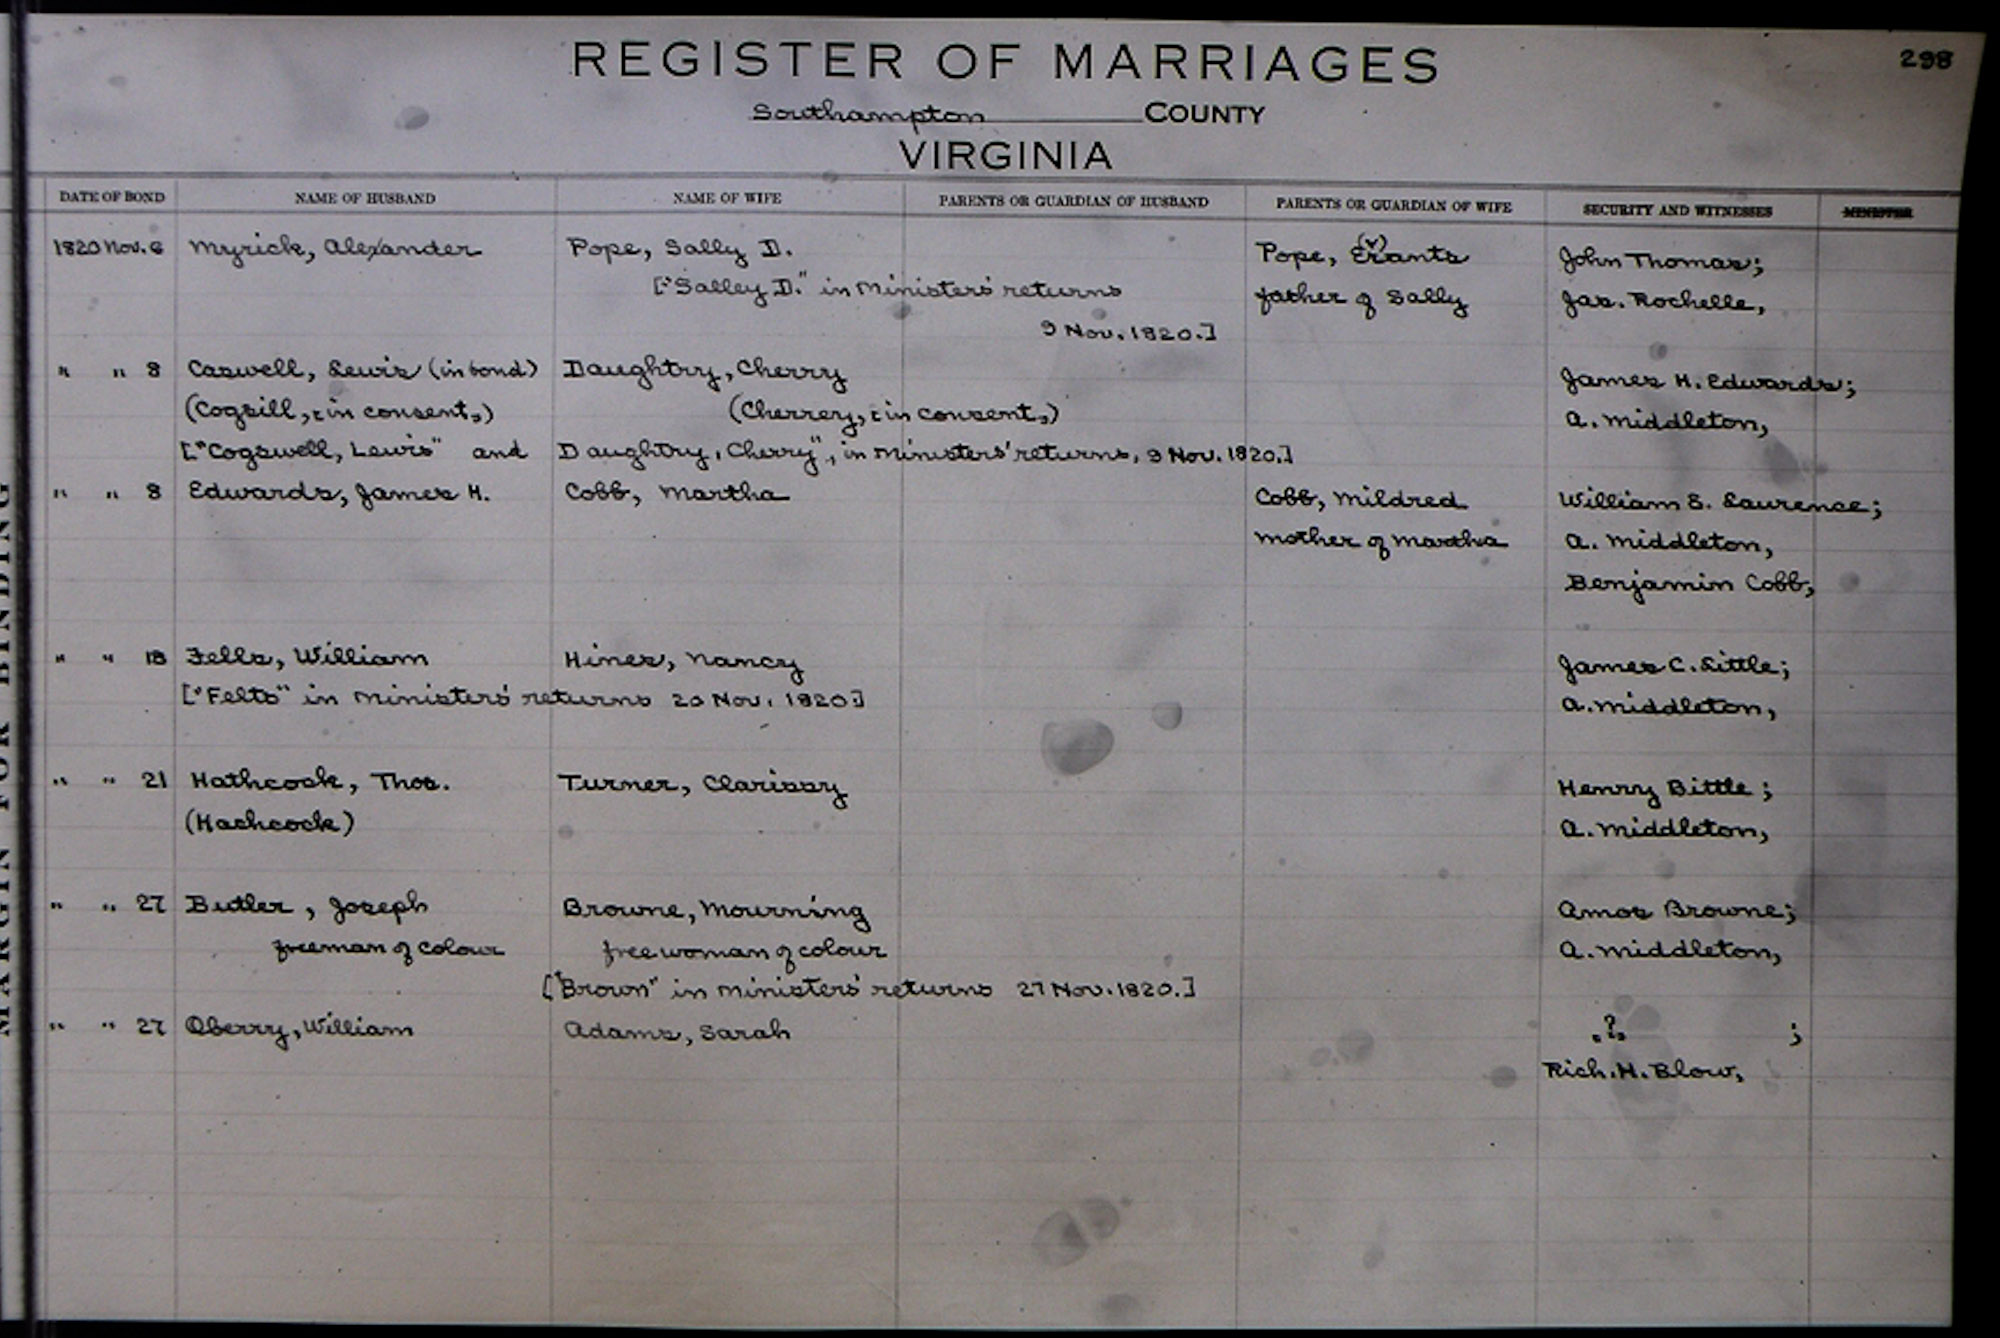 298
REGISTER OF MARRIAGES
Southampton COUNTY
VIRGINIA
DATE OF BOND NAME OF HUSBAND NAME OF WIFE PARENTS OR GUARDIAN OF HUSBAND PARENTS OR GUARDIAN OF WIFE SECURITY AND WITNESSES MINISTER
1820 Nov. 6 Myrick, Alexander Pope, Sally D. Pope, Erants John Thomas;
(v)
["Salley D." in Ministers' returns father of Sally Jas. Rochelle,
9 Nov. 1820.]
" " 8 Caswell, Lewis (in bond) Daughtry, Cherry James H. Edwards;
(Cogsill, in consent,) (Cherrey, in consent,) A. Middleton,
["Cogswell, Lewis" and Daughtry, Cherry", in Ministers' returns, 9 Nov. 1820.]
" " 8 Edwards, James H. Cobb, Martha Cobb, Mildred William S. Laurence;
mother of Martha A. Middleton,
Benjamin Cobb,
" " 18 Fells, William Hines, Nancy James C. Little;
["Felts" in Ministers' returns 20 Nov. 1820.] A. Middleton,
" " 21 Hathcock, Thos. Turner, Clarissy Henry Bittle;
(Hachcock) A. Middleton,
" " 27 Butler, Joseph Browne, Mourning Amos Browne;
freeman of colour free woman of colour A. Middleton,
["Brown" in Ministers' returns 27 Nov. 1820.]
" " 27 Oberry, William Adams, Sarah ? ;
Rich. H. Blow,
MARGIN FOR BINDING